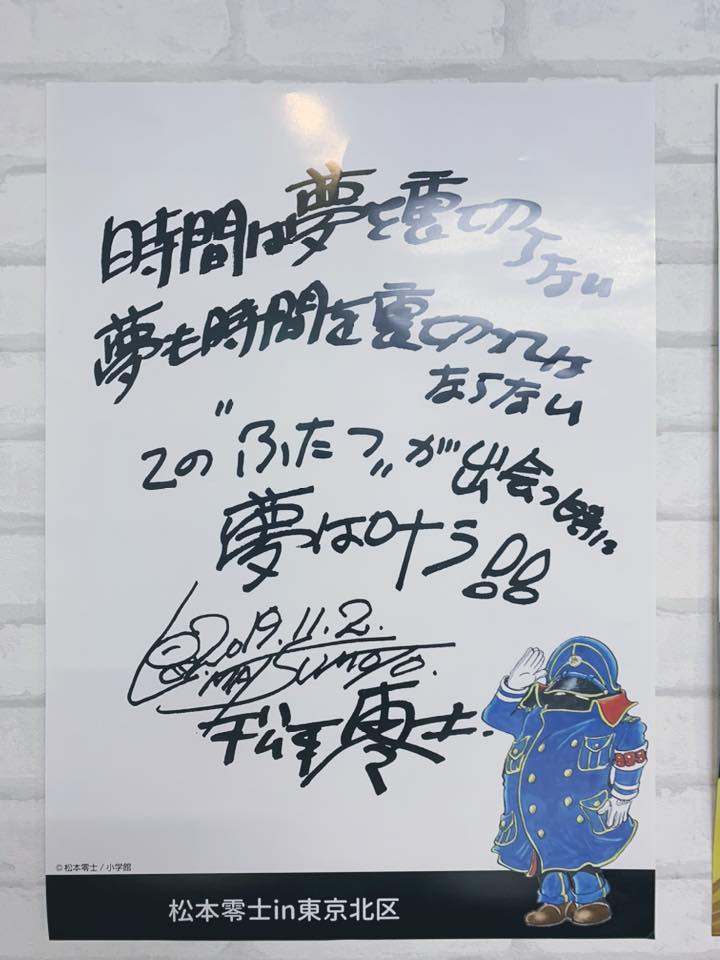 時間は夢を裏切らない
夢も時間を裏切っては
ならない
この"ふたつ"が出会う時に
夢は叶う!!
2019.11.2.
L.MATSUMOTO.
松本零士.
999
©松本零士 / 小学館
松本零士in東京北区